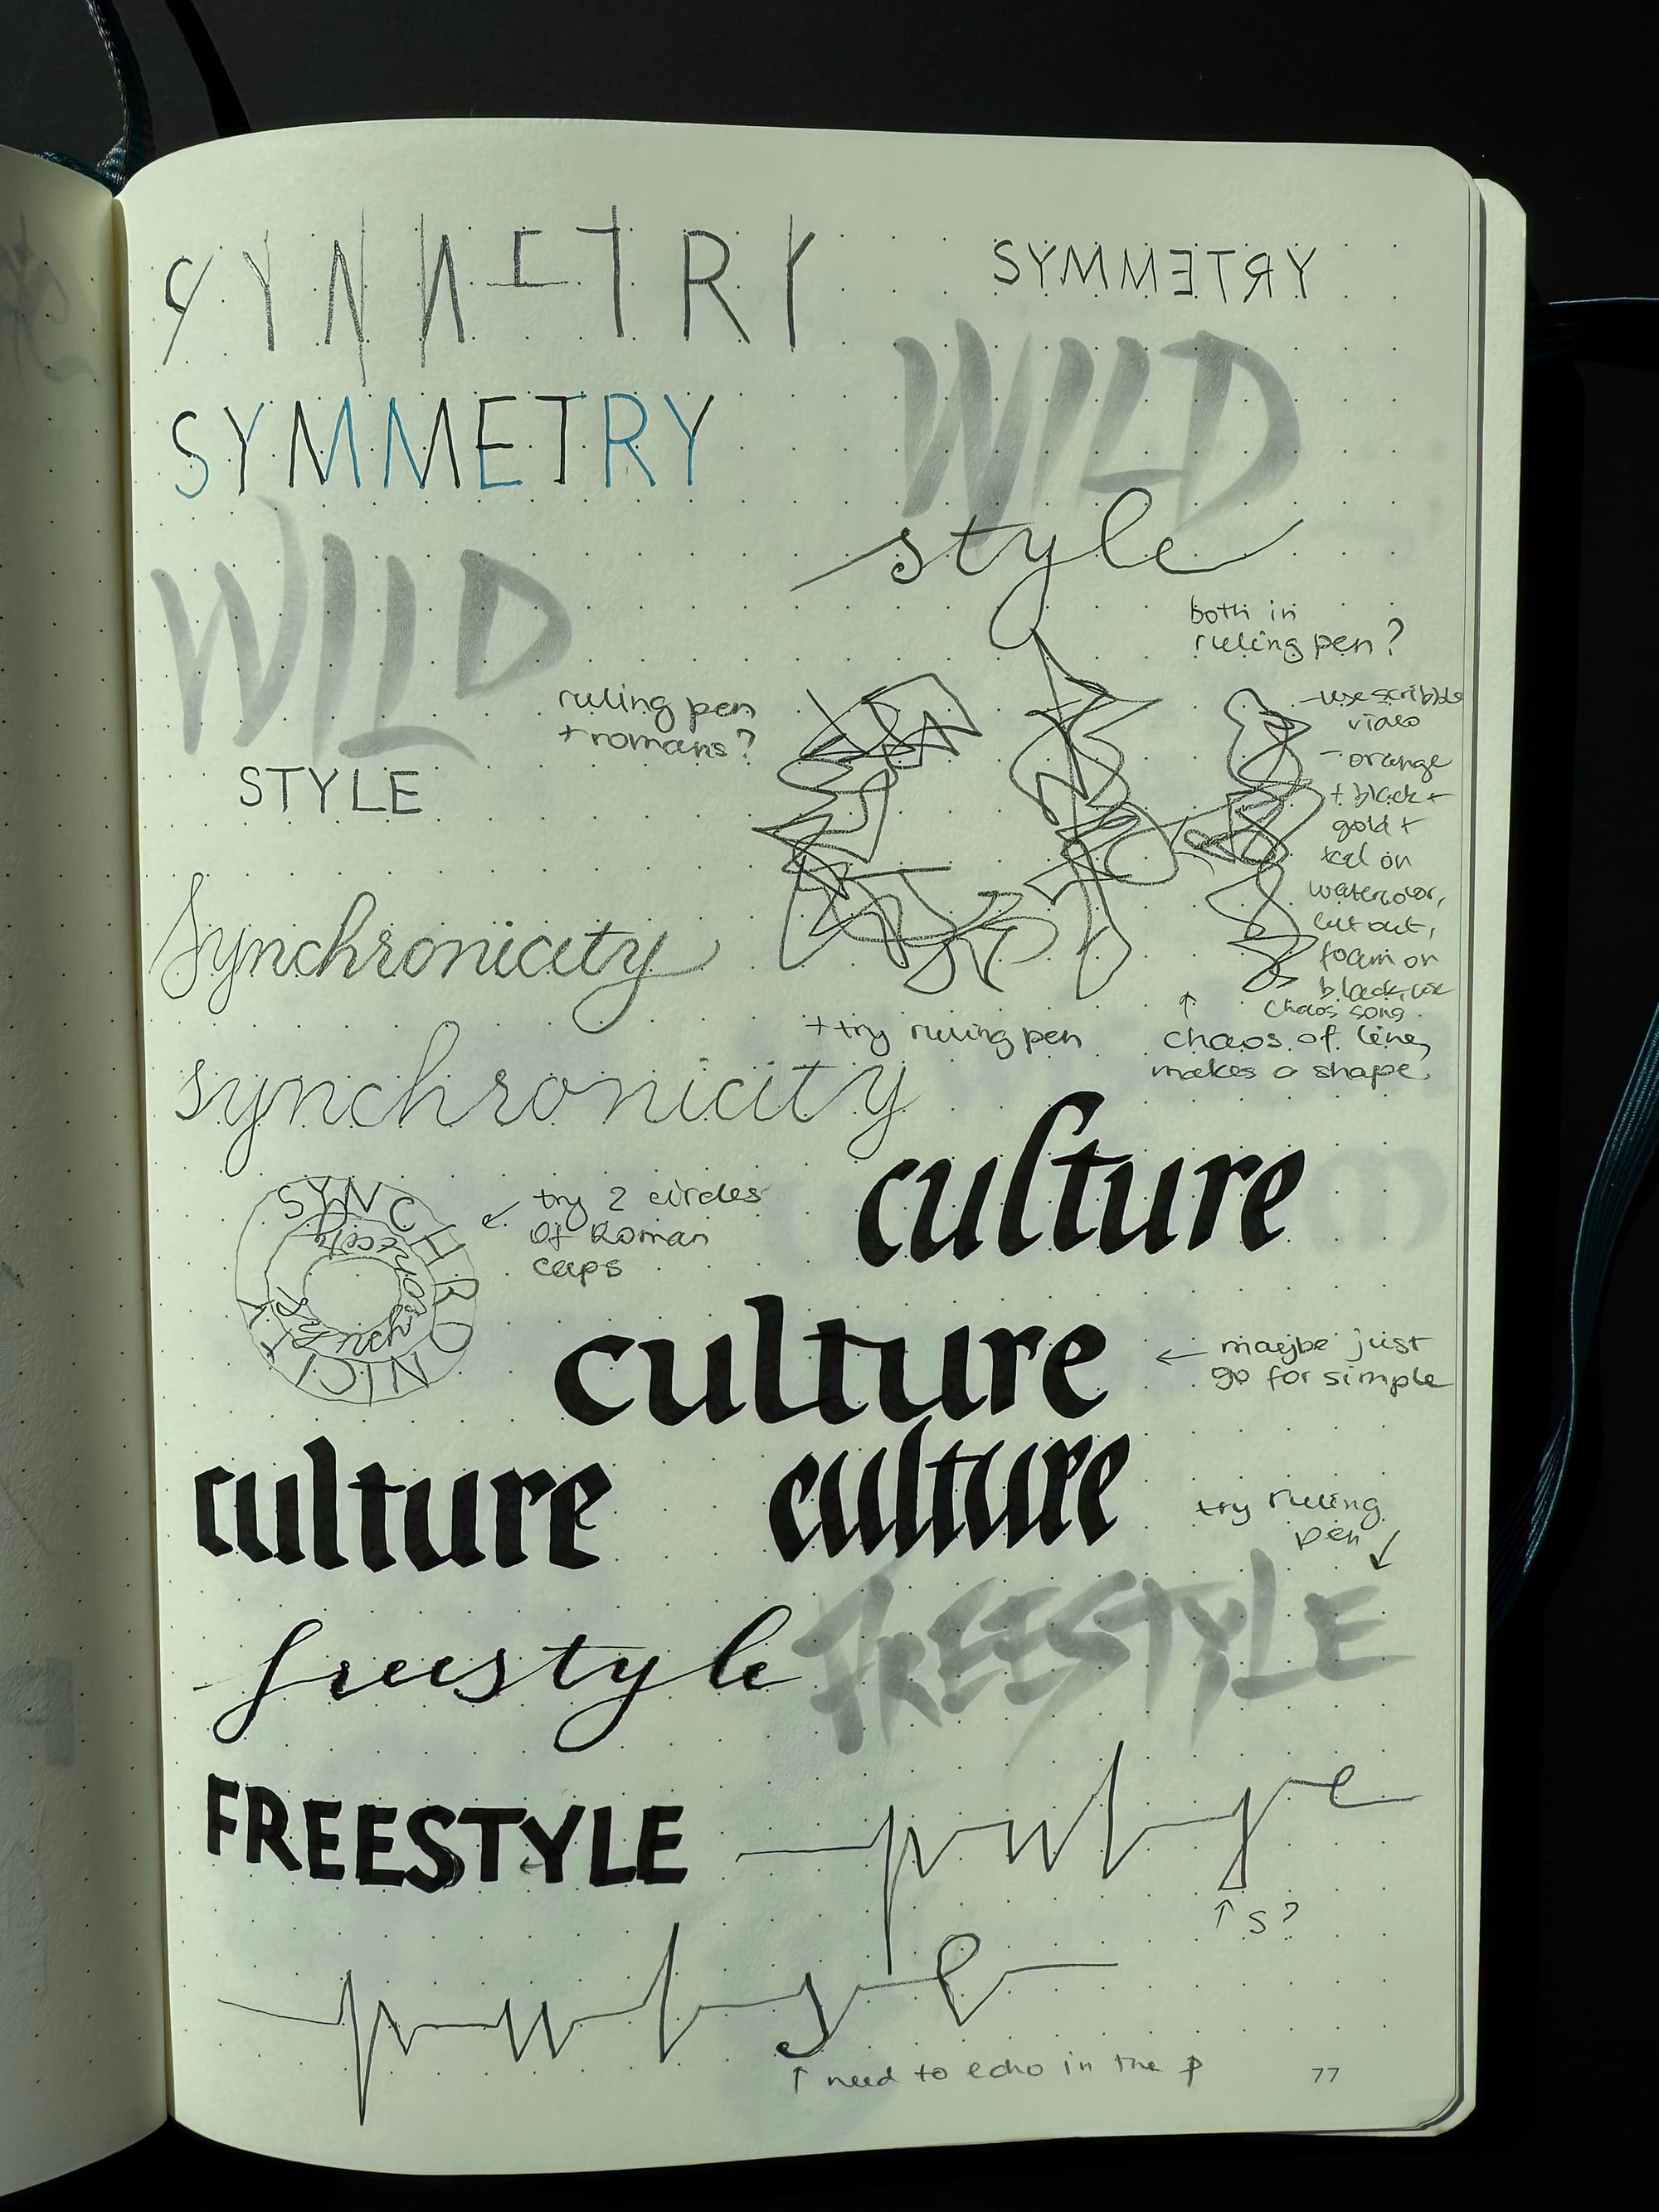 SYMMETRY
SYMMETRY
SYMMETRY
WILD
style
WILD
STYLE
ruling pen
+ romans?
both in
ruling pen?
- use scribble
video
- orange
+ black +
gold +
teal on
watercolor,
cut out,
foam on
black, use
chaos song
+ try ruling pen
↑
chaos of line,
makes a shape
Synchronicity
synchronicity
SYNCHRONICITY
synchronicity
← try 2 circles
of Roman
caps
culture
culture
← maybe just
go for simple
culture culture
try ruling
pen ↓
freestyle FREESTYLE
FREESTYLE
pulse
↑ s?
pulse
↑ need to echo in the p
77